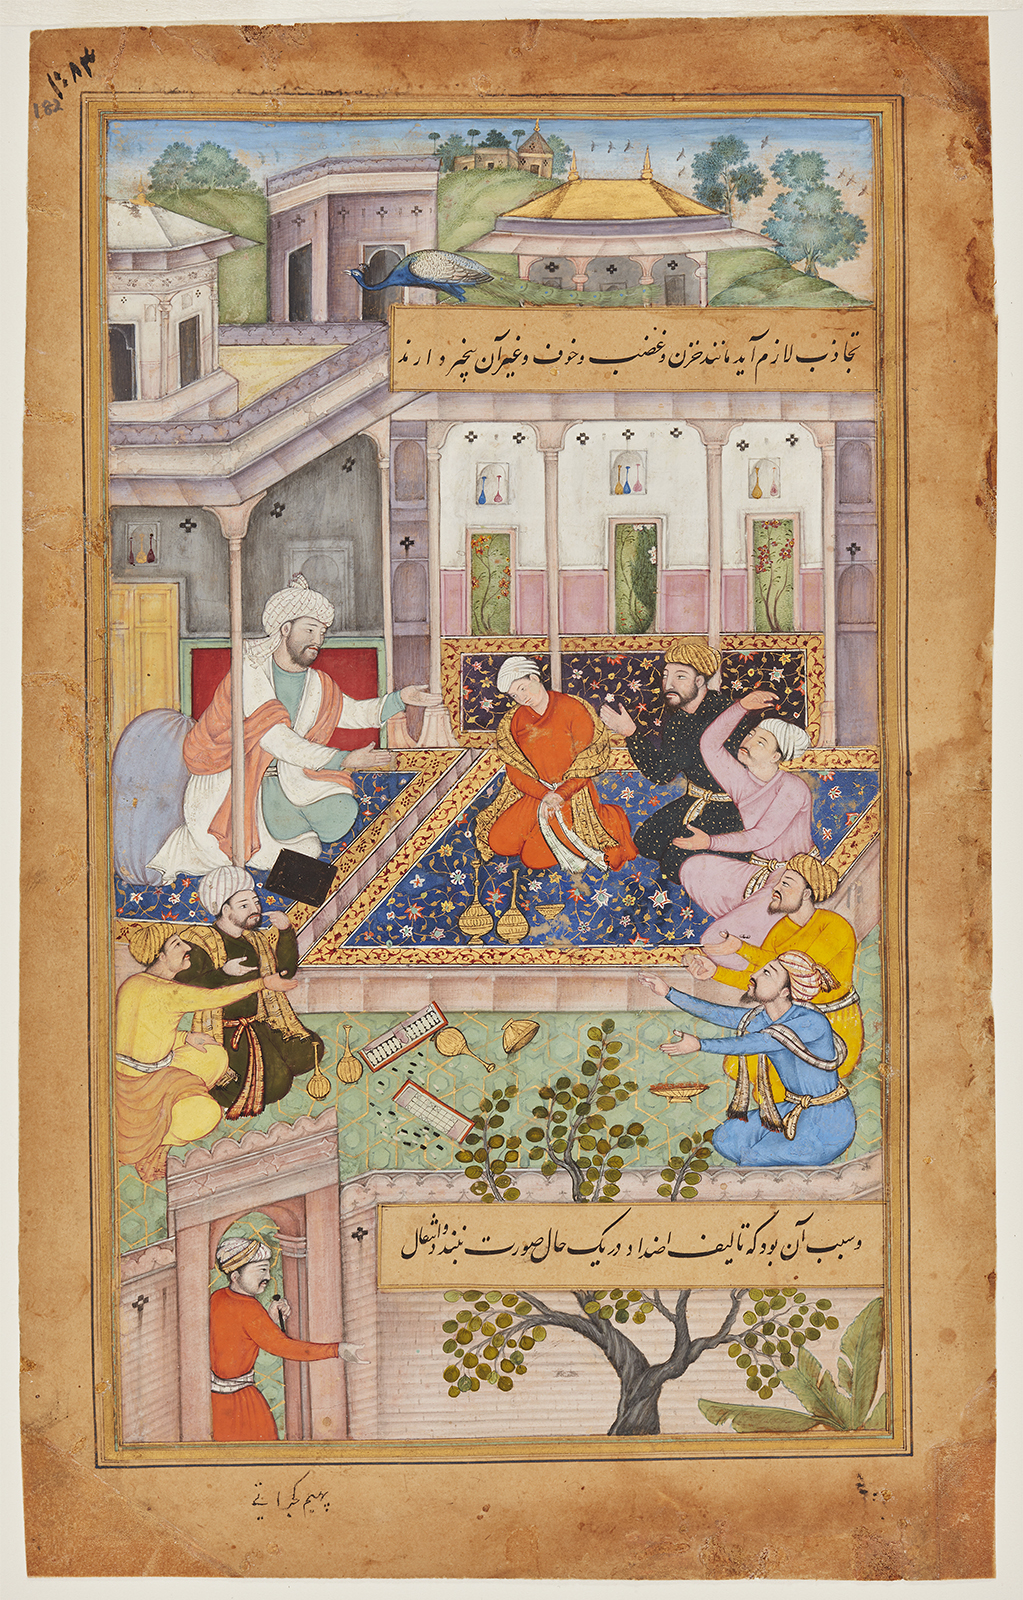 182
تجاذب لازم آید مانند حزن و غضب و خوف و غیر آن
و سبب آن بود که تالیف اضداد در یک حال صورت نبندد و انتقال
بهیم گجراتی